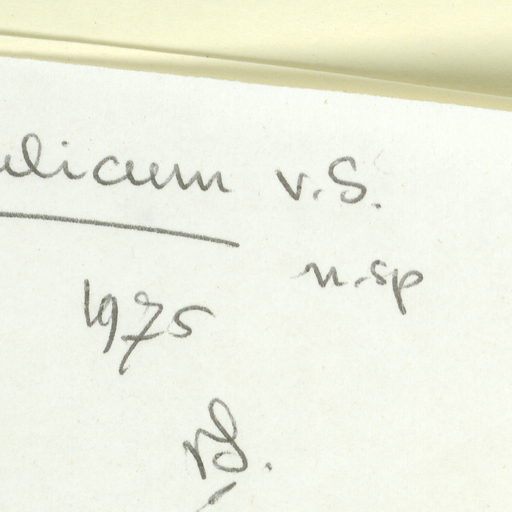 ulicum v.S.
n.sp
1975